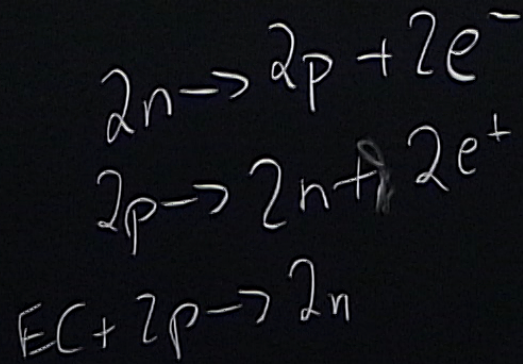 2n → 2p + 2e⁻
2p → 2n + 2e⁺
EC + 2p → 2n